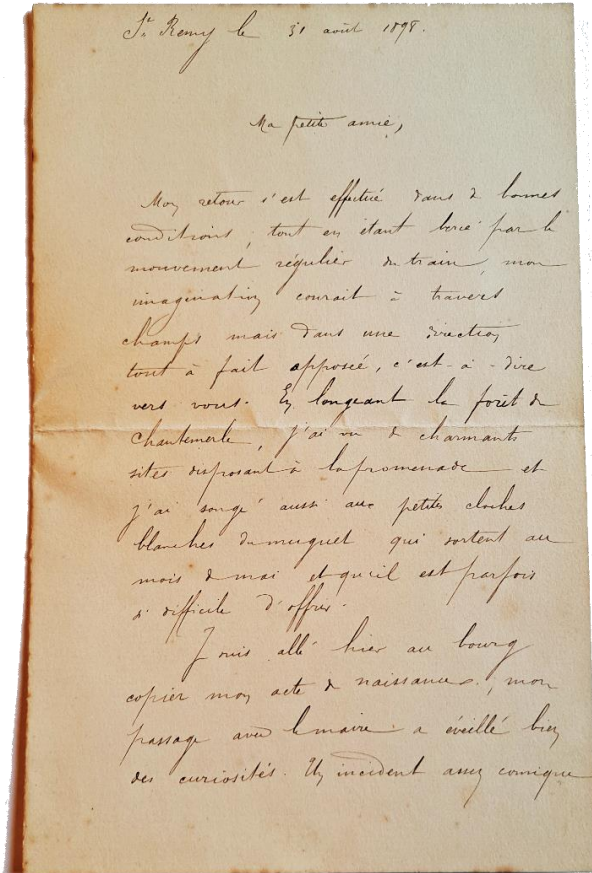 St Remy le 31 août 1898.
Ma petite amie,
Mon retour s'est effectué dans de bonnes
conditions, tout en étant bercé par le
mouvement régulier du train, mon
imagination courait à travers
champs mais dans une direction
tout à fait opposée, c'est-à-dire
vers vous. En longeant la forêt de
Chantemerle, j'ai vu de charmants
sites disposant à la promenade et
j'ai songé aussi aux petites cloches
blanches du muguet qui sortent au
mois de mai et qu'il est parfois
si difficile d'offrir.
Je suis allé hier au bourg
copier mon acte de naissance, mon
passage avec le maire a éveillé bien
des curiosités. Un incident assez comique